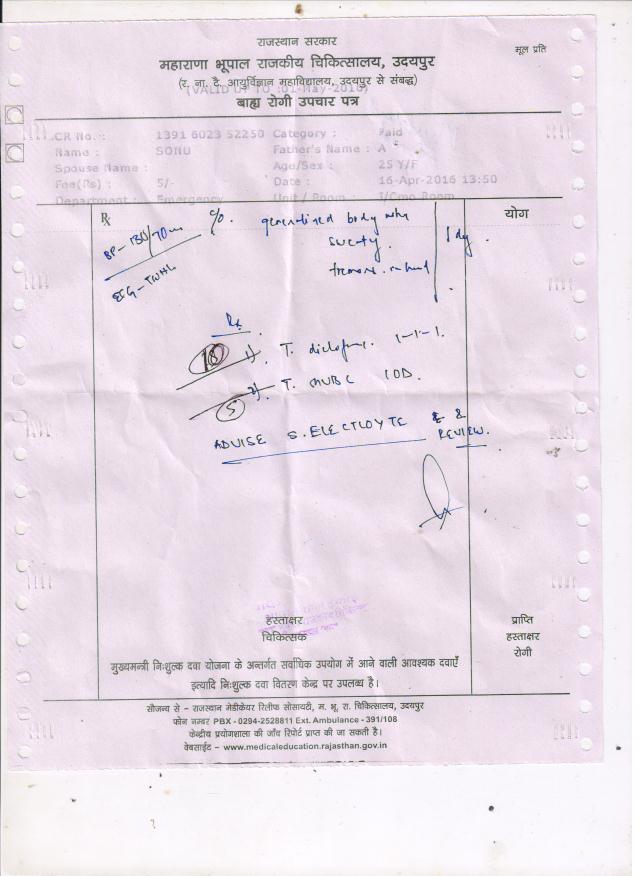 राजस्थान सरकार
मूल प्रति
महाराणा भूपाल राजकीय चिकित्सालय, उदयपुर
(र. ना. टै. आयुर्विज्ञान महाविद्यालय, उदयपुर से संबद्ध)
(VALID UPTO :01-May-2016)
बाह्य रोगी उपचार पत्र
CR No. : 1391 6023 52250 Category : Paid
Name : SONU Father's Name : A
Spouse Name : Age/Sex : 25 Y/F
Fee(Rs) : 5/- Date : 16-Apr-2016 13:50
Department Emergency Unit / Room
℞ योग
BP-130/70
generalized body
1 day
Rx
18 1) T. diclofenac 1-1-1
5 2) T. MVBC 1OD.
ADVISE S. ELECTLOYTE & REVIEW.
हस्ताक्षर
चिकित्सक
प्राप्ति
हस्ताक्षर
रोगी
मुख्यमन्त्री निःशुल्क दवा योजना के अन्तर्गत सर्वाधिक उपयोग में आने वाली आवश्यक दवाएँ
इत्यादि निःशुल्क दवा वितरण केन्द्र पर उपलब्ध है।
सौजन्य से - राजस्थान मेडीकेयर रिलीफ सोसायटी, म. भू. रा. चिकित्सालय, उदयपुर
फोन नम्बर PBX - 0294-2528811 Ext. Ambulance - 391/108
केन्द्रीय प्रयोगशाला की जाँच रिपोर्ट प्राप्त की जा सकती है।
वेबसाईट - www.medicaleducation.rajasthan.gov.in